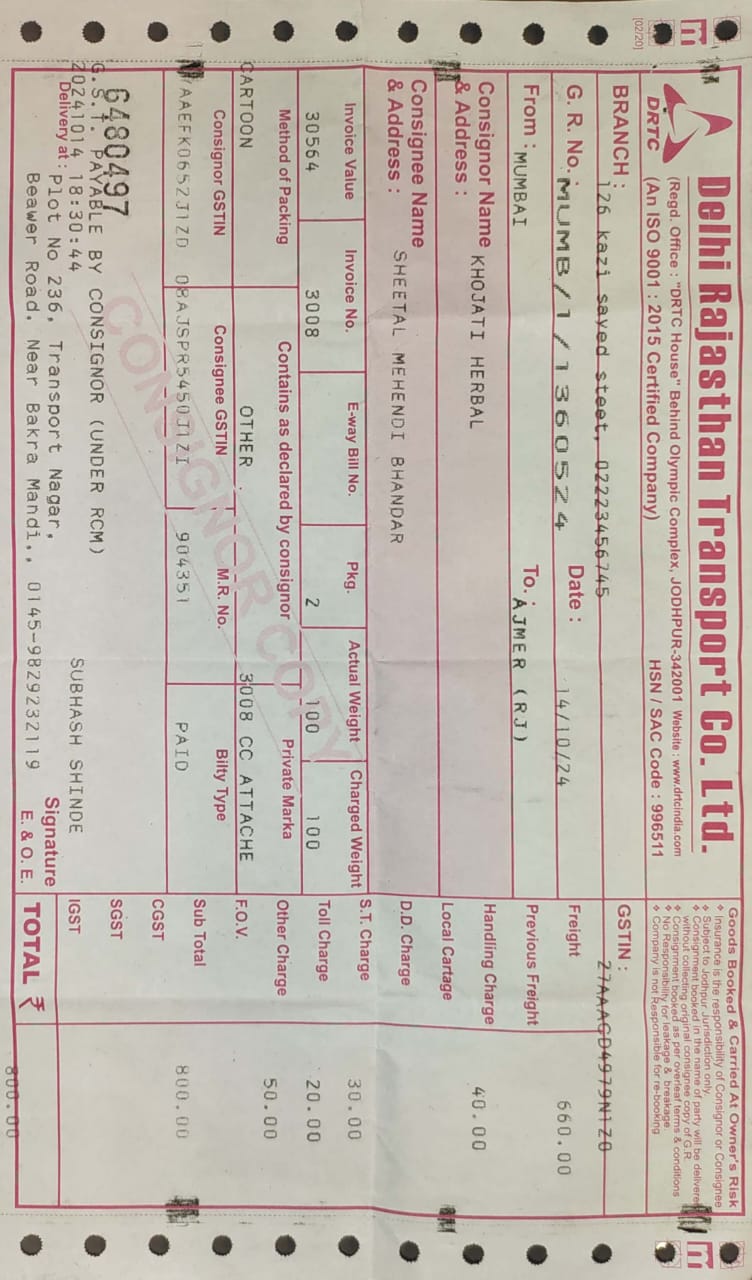 [02/20]
Delhi Rajasthan Transport Co. Ltd.
DRTC
(Regd. Office : "DRTC House" Behind Olympic Complex, JODHPUR-342001 Website : www.drtcindia.com
(An ISO 9001 : 2015 Certified Company)
HSN / SAC Code : 996511
Goods Booked & Carried At Owner's Risk
Insurance is the responsibility of Consignor or Consignee
Subject to Jodhpur Jurisdiction only.
Consignment booked in the name of party will be delivere
without collecting original consignee copy of G.R.
Consignment booked as per overleaf terms & conditions
No Responsibility for leakage & breakage
Company is not Responsible for re-booking
BRANCH : 126 kazi sayed steet, 02223456745
GSTIN : 27AAACD4979N1Z0
G. R. No. : MUMB/1/1360524 Date : 14/10/24
From : MUMBAI To. : AJMER (RJ)
Consignor Name & Address : KHOJATI HERBAL
Consignee Name & Address : SHEETAL MEHENDI BHANDAR
Invoice Value Invoice No. E-way Bill No. Pkg. Actual Weight Charged Weight
30564 3008 2 100 100
Method of Packing Contains as declared by consignor Private Marka
CARTOON OTHER 3008 CC ATTACHE
Consignor GSTIN Consignee GSTIN M.R. No. Bilty Type
AAEFK0652J1ZD 08AJSPR5450J1ZI 904351 PAID
CONSIGNOR COPY
6480497
G.S.T. PAYABLE BY CONSIGNOR (UNDER RCM)
20241014 18:30:44 SUBHASH SHINDE
Delivery at : Plot No 236, Transport Nagar, Signature
Beawer Road, Near Bakra Mandi,, 0145-9829232119 E. & O. E.
Freight 660.00
Previous Freight
Handling Charge 40.00
Local Cartage
D.D. Charge
S.T. Charge 30.00
Toll Charge 20.00
Other Charge 50.00
F.O.V.
Sub Total 800.00
CGST
SGST
IGST
TOTAL ₹ 800.00